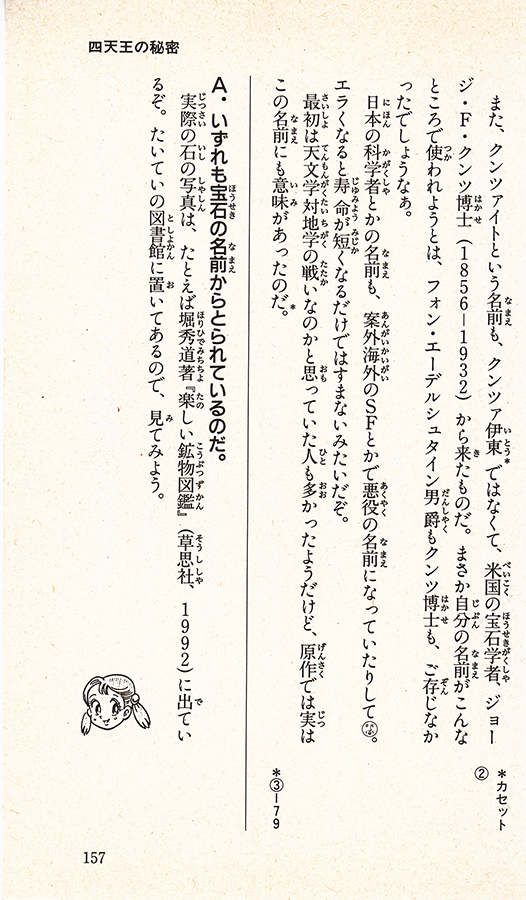 四天王の秘密
また、クンツァイトという名前も、クンツァ伊東*ではなくて、米国の宝石学者、ジョー
ジ・F・クンツ博士(1856ー1932)から来たものだ。まさか自分の名前がこんな
ところで使われようとは、フォン・エーデルシュタイン男爵もクンツ博士も、ご存じなか
ったでしょうなぁ。
日本の科学者とかの名前も、案外海外のSFとかで悪役の名前になっていたりして笑。
エラくなると寿命が短くなるだけではすまないみたいだぞ。
最初は天文学対地学の戦いなのかと思っていた人も多かったようだけど、原作では実は
この名前にも意味があったのだ。*
*カセット
②
*③ー79
A・いずれも宝石の名前からとられているのだ。
実際の石の写真は、たとえば堀秀道著『楽しい鉱物図鑑』(草思社、1992)に出てい
るぞ。たいていの図書館に置いてあるので、見てみよう。
157